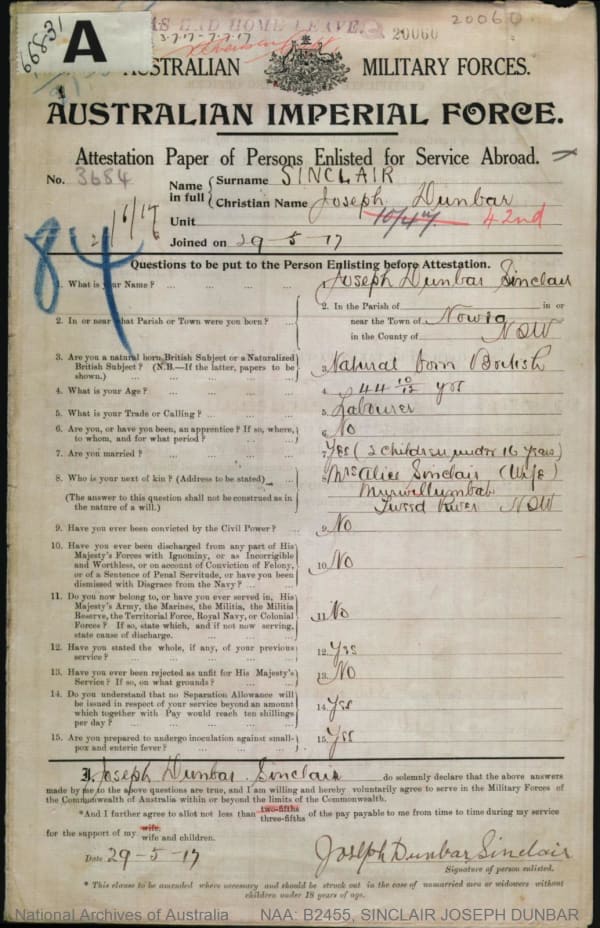 AS END HOME LEAVE.
20060
20060
3-7-17 - 7-7-17
668-31
A
AUSTRALIAN MILITARY FORCES.
AUSTRALIAN IMPERIAL FORCE.
Attestation Paper of Persons Enlisted for Service Abroad.
No. 3684
Name in full { Surname SINCLAIR
Christian Name Joseph Dunbar
Unit 10/47 42nd
/6/17
Joined on 29-5-17
84
Questions to be put to the Person Enlisting before Attestation.
1. What is your Name? ... ... ... ... Joseph Dunbar Sinclair
2. In or near what Parish or Town were you born? ...
2. In the Parish of in or
near the Town of Nowra
in the County of NSW
3. Are you a natural born British Subject or a Naturalized
British Subject? (N.B.—If the latter, papers to be
shown.) ... ... ... ...
3. Natural born British
4. What is your Age? ... ... ... ... 4. 44 10/12 yrs
5. What is your Trade or Calling? ... ... ... 5. Labourer
6. Are you, or have you been, an apprentice? If so, where,
to whom, and for what period? ... ...
6. No
7. Are you married? ... ... ... ... 7. Yes (2 children under 16 years)
8. Who is your next of kin? (Address to be stated) ...
8. Mrs Alice Sinclair (Wife)
Murwillumbah
(The answer to this question shall not be construed as in
the nature of a will.)
Tweed River NSW
9. Have you ever been convicted by the Civil Power? ... 9. No
10. Have you ever been discharged from any part of His
Majesty's Forces with Ignominy, or as Incorrigible
and Worthless, or on account of Conviction of Felony,
or of a Sentence of Penal Servitude, or have you been
dismissed with Disgrace from the Navy? ... ...
10. No
11. Do you now belong to, or have you ever served in, His
Majesty's Army, the Marines, the Militia, the Militia
Reserve, the Territorial Force, Royal Navy, or Colonial
Forces? If so, state which, and if not now serving,
state cause of discharge. ... ... ...
11. No
12. Have you stated the whole, if any, of your previous
service? ... ... ... ...
12. Yes
13. Have you ever been rejected as unfit for His Majesty's
Service? If so, on what grounds? ... ...
13. No
14. Do you understand that no Separation Allowance will
be issued in respect of your service beyond an amount
which together with Pay would reach ten shillings
per day? ... ... ... ...
14. Yes
15. Are you prepared to undergo inoculation against small-
pox and enteric fever? ... ... ...
15. Yes
I, Joseph Dunbar Sinclair do solemnly declare that the above answers
made by me to the above questions are true, and I am willing and hereby voluntarily agree to serve in the Military Forces of
the Commonwealth of Australia within or beyond the limits of the Commonwealth.
*And I further agree to allot not less than two-fifths three-fifths of the pay payable to me from time to time during my service
for the support of my wife. wife and children.
Date 29-5-17 Joseph Dunbar Sinclair
Signature of person enlisted.
* This clause to be amended where necessary and should be struck out in the case of unmarried men or widowers without
children under 18 years of age.
National Archives of Australia NAA: B2455, SINCLAIR JOSEPH DUNBAR